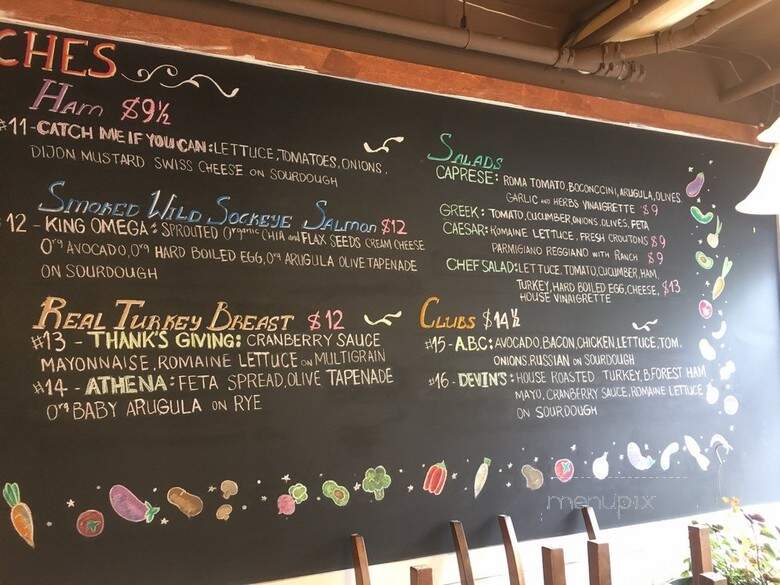 CHES
Ham $9½
#11-CATCH ME IF YOU CAN: LETTUCE, TOMATOES, ONIONS,
DIJON MUSTARD SWISS CHEESE ON SOURDOUGH
Smoked Wild Sockeye Salmon $12
12 - KING OMEGA: SPROUTED Organic CHIA and FLAX SEEDS CREAM CHEESE
Org AVOCADO, Org HARD BOILED EGG, Org ARUGULA OLIVE TAPENADE
ON SOURDOUGH
REAL TURKEY BREAST $12
#13 - THANK'S GIVING: CRANBERRY SAUCE
MAYONNAISE, ROMAINE LETTUCE ON MULTIGRAIN
#14 - ATHENA: FETA SPREAD, OLIVE TAPENADE
Org BABY ARUGULA ON RYE
SALADS
CAPRESE: ROMA TOMATO, BOCONCCINI, ARUGULA, OLIVES
GARLIC and HERBS VINAIGRETTE $9
GREEK: TOMATO, CUCUMBER, ONIONS, OLIVES, FETA
CAESAR: ROMAINE LETTUCE, FRESH CROUTONS $9
PARMIGIANO REGGIANO WITH RANCH $9
CHEF SALAD: LETTUCE, TOMATO, CUCUMBER, HAM,
TURKEY, HARD BOILED EGG, CHEESE, $13
HOUSE VINAIGRETTE
CLUBS $14½
#15 - A.B.C: AVOCADO, BACON, CHICKEN, LETTUCE, TOM.
ONIONS. RUSSIAN ON SOURDOUGH
#16 - DEVIN'S: HOUSE ROASTED TURKEY, B. FOREST HAM
MAYO, CRANBERRY SAUCE, ROMAINE LETTUCE
ON SOURDOUGH
menupix